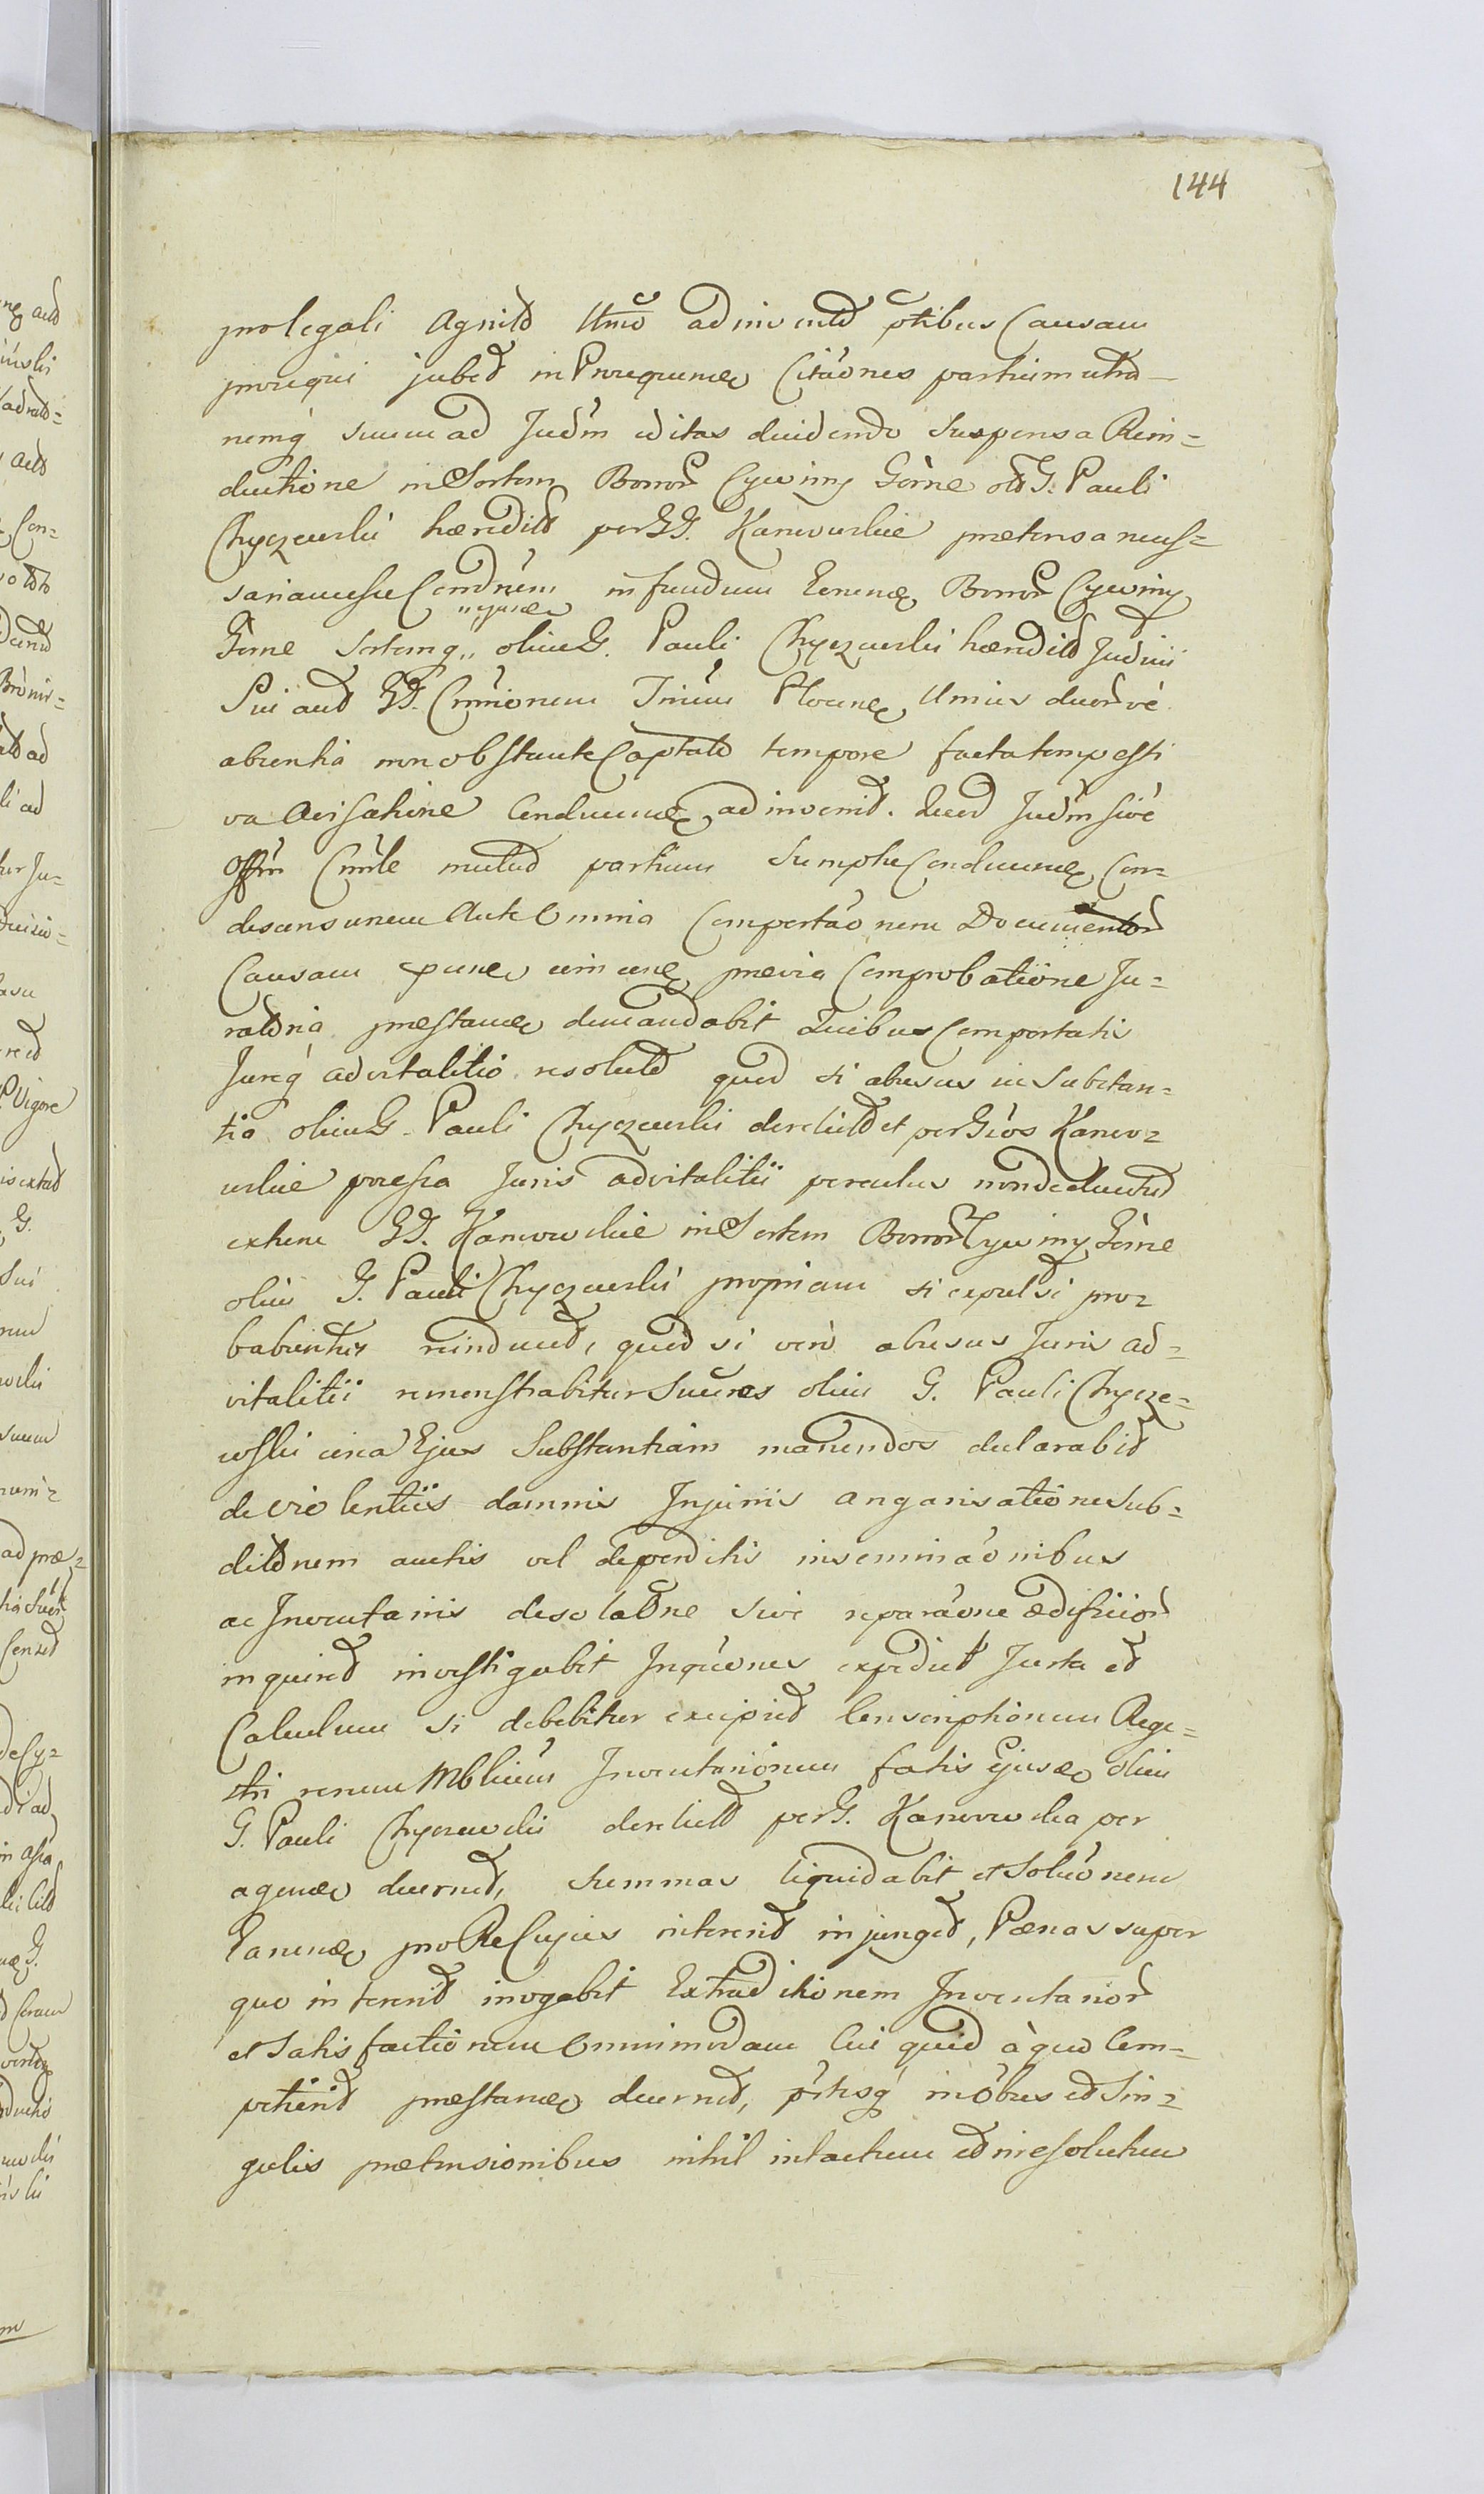 144
pro legali Agnit Ulterio adinvenit ptibus Causam
prosequi jubet in Prosequenda Citaones partium utro
nemq suum ad Judm editas decidendo Suspensa Rein=
ductione in Sortem Bonor Cywiny Gòrne olim G. Pauli
Chyczewski hæredit per GG. Kanwowskie prætensa neces=
sariam esse Condnem in fundum Terrenæ Bonor Cywiny
"ejusdæ
Górne Sortemq" olim G. Pauli Chyczewski hæredit Judicii
Sui aut GD. Cmmionum Trium Plocen Unius duor vè
absentia non obstante Captato tempore facta tempesti
va Avisatione Conducend adinvenit. Quod Judm sivè
Offm Cmle mutuo partium Sumptu Conducend Con=
descensurum Ante Omnia Comportaonem Documentor
Causam  prævia Comprobatione Ju=
ratoria præstand demandabit Quibus Comportatis
Jureq advitalitio resoluto quod si abusus in Substan=
tia olim G. Pauli Chyczewski derelict et per Gsos Kanwo=
wskie possessa Juris advitalitii penitus non deducetur
extunc GD. Kanwowskie in Sortem Bonor Cywiny Górne
olim G. Pauli Chyczewski propriam si expulsi pro=
babuntur reinducet, quod si verò abusus Juris ad=
vitalitii remonstrabitur Succres olim G. Pauli Chycze=
wski circa Ejus Substantiam manendos declarabit
de violentiis damnis Injuriis angarisatione Sub=
ditornem auctis vel deperditis inseminaonibus
ac Inventariis desolatone sive reparaone ædificior
inquiret investigabit Inquones expediet Juxta et
Calculum si debebitur excipiet Conscriptionem Rege=
stri rerum Mblium Inventariorum fatis ejusdæ olim
G. Pauli Chyczewski derelict per G. Kanwowska per
agend decernet, Summas liquidabit et Soluonem
 pro Re Cujus intererit injunget, Pænas super
quo intererit irrogabit Extraditionem Inventarior
et Satisfactionem Omnimodam Cui quid à quo Com=
petierit præstand decernet, ptisq in obus et Sin=
gulis prætensionibus nihil intactum et irresolutum